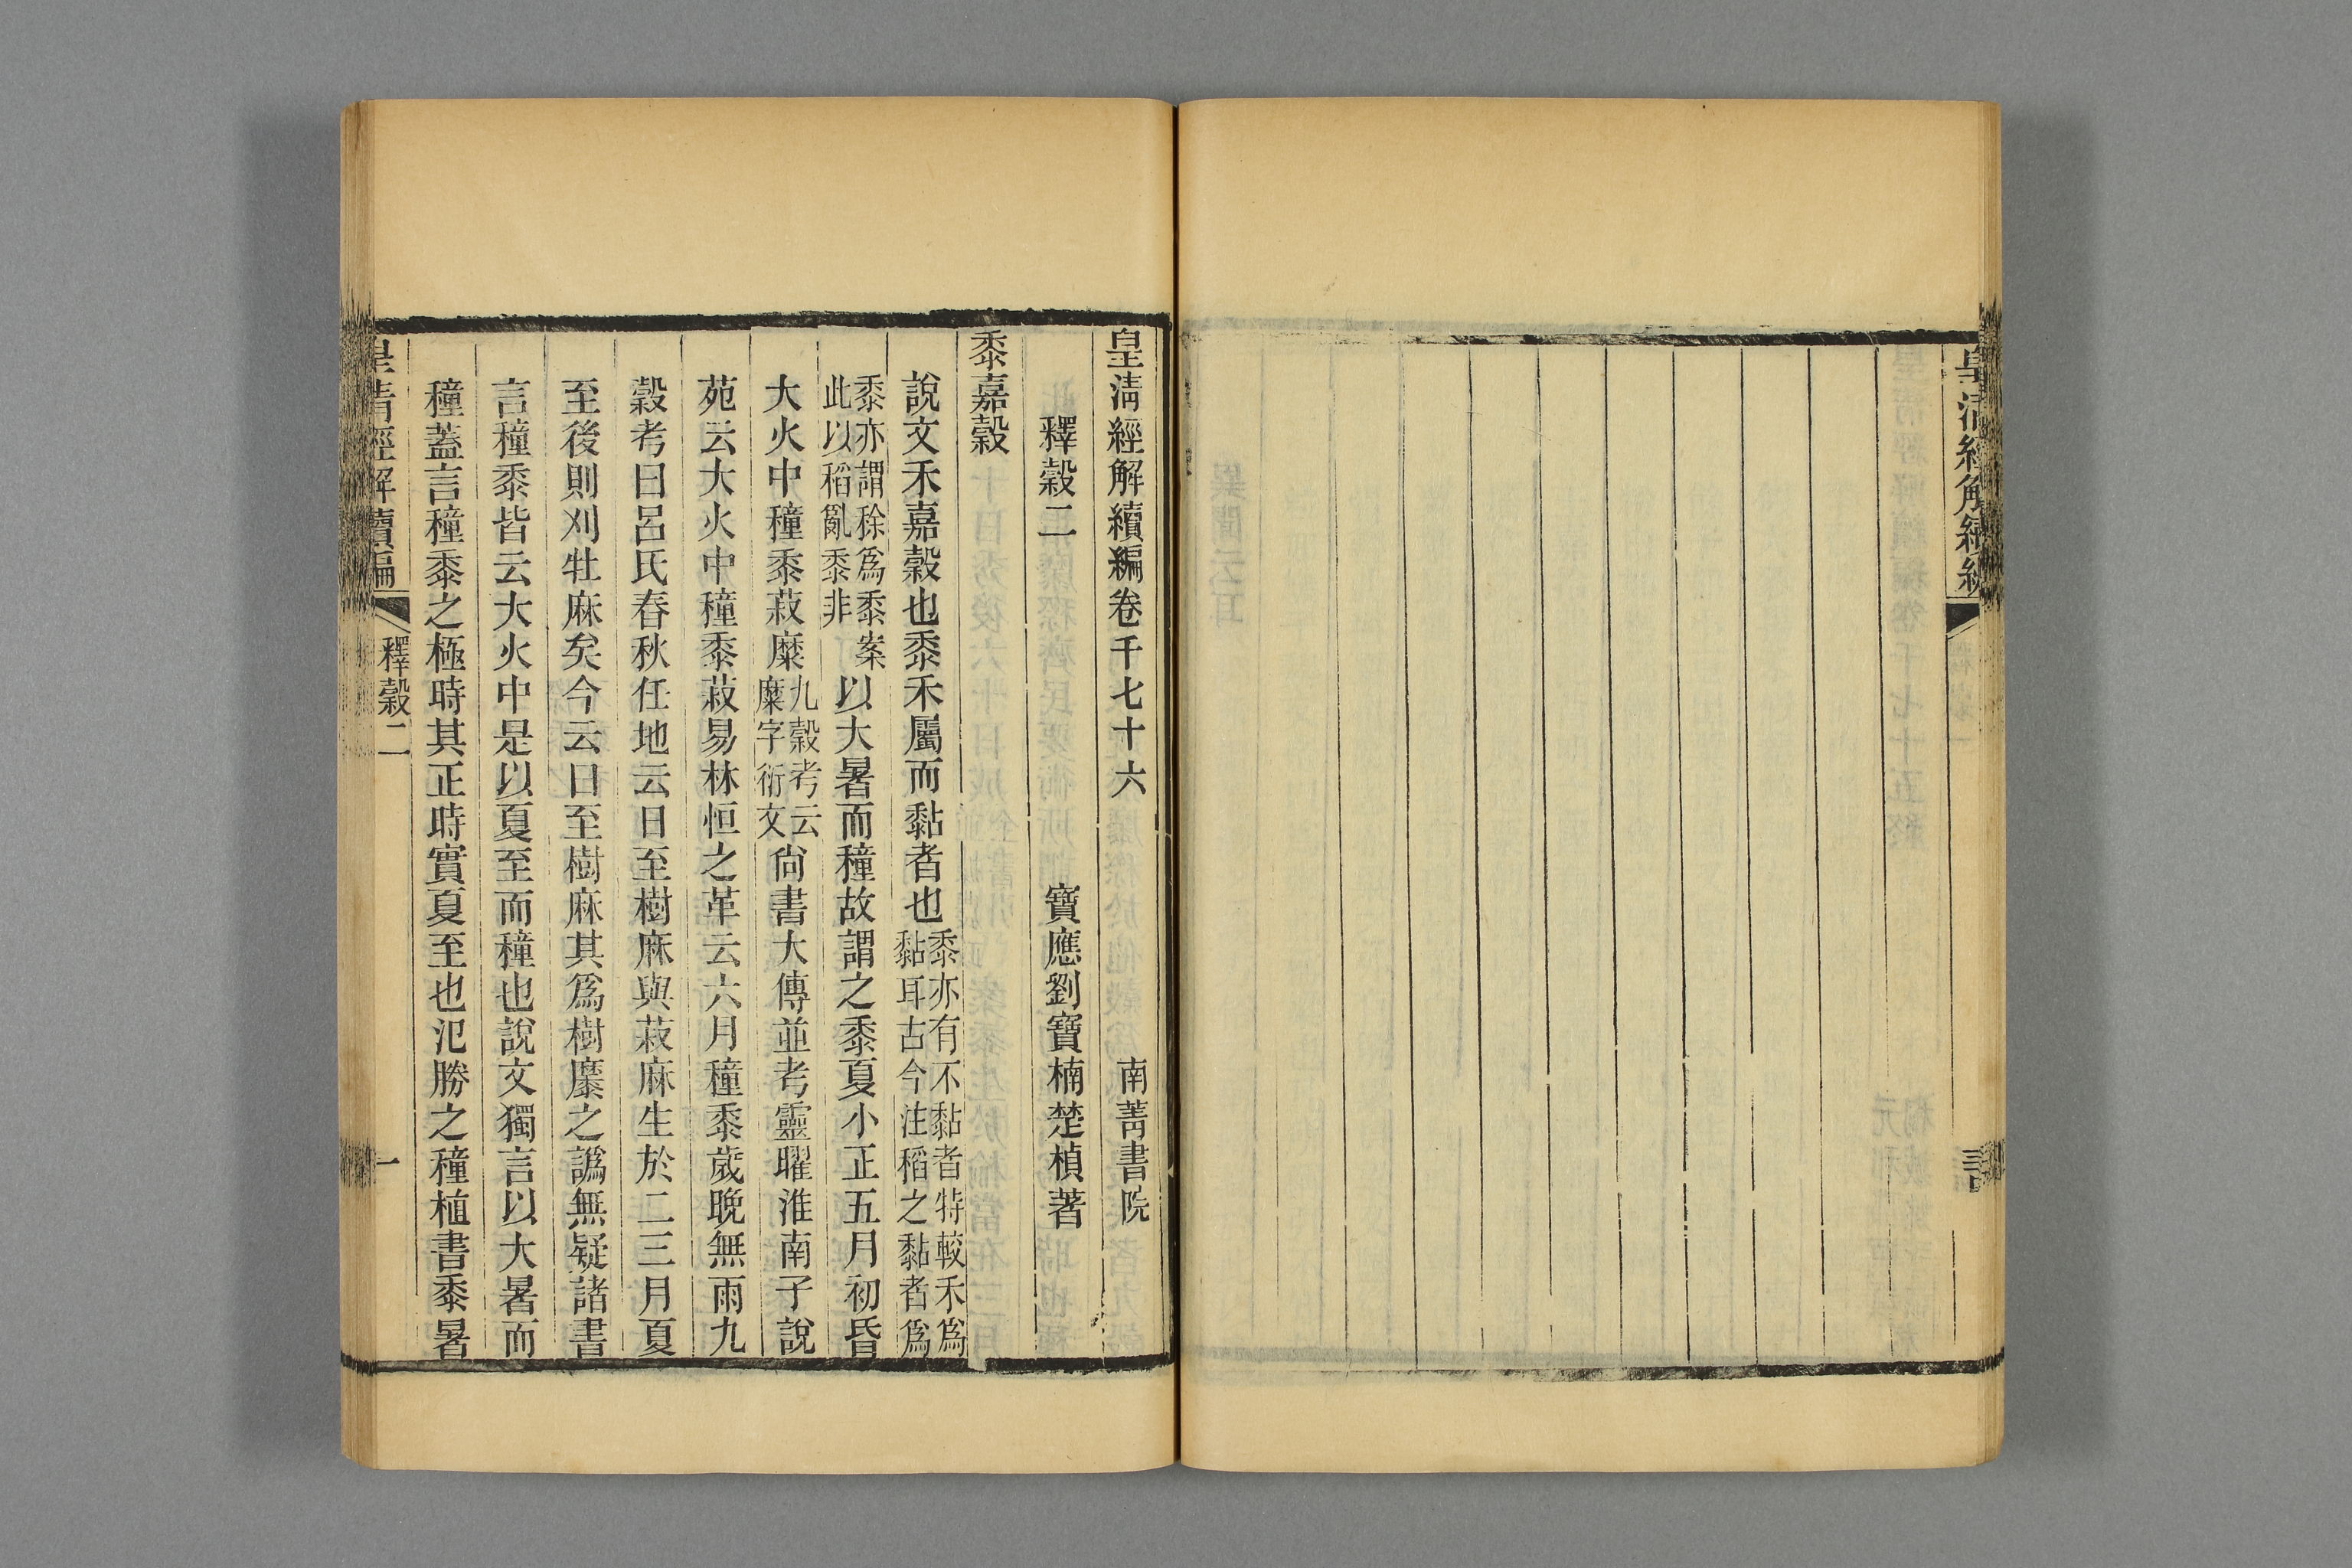 皇淸經解續編
皇淸經解續編卷千七十六
南菁書院
釋穀二
寶應劉寶楠楚楨著
黍嘉穀
說文禾嘉穀也黍禾屬而黏者也黍亦有不黏者特較禾爲
黏耳古今注稻之黏者爲
黍亦謂稌爲黍案
此以稻亂黍非
以大暑而穜故謂之黍夏小正五月初昏
大火中穜黍菽糜九穀考云
糜字衍文
尙書大傳並考靈曜淮南子說
苑云大火中穜黍菽易林恒之革云六月穜黍歲晚無雨九
穀考曰呂氏春秋任地云日至樹麻與菽麻生於二三月夏
至後則刈牡麻矣今云日至樹麻其爲樹穈之譌無疑諸書
言穜黍皆云大火中是以夏至而穜也說文獨言以大暑而
穜蓋言穜黍之極時其正時實夏至也氾勝之穜植書黍暑
皇淸經解續編
釋穀二
一